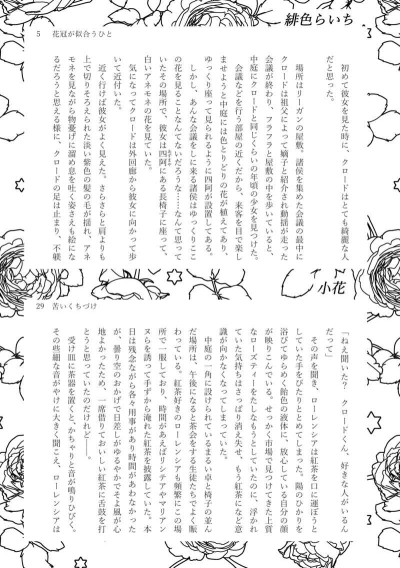 緋色らいち
5 花冠が似合うひと
初めて彼女を見た時に、クロードはとても綺麗な人
だと思った。
場所はリーガンの屋敷。諸侯を集めた会議の最中に
クロードは祖父によって嫡子と紹介され動揺が走った
会議が終わり、フラフラと屋敷の中を歩いていると、
中庭にクロードと同じくらいの年頃の少女を見つけた。
会議などを行う部屋の近くだから、来客を目で楽し
ませようと中庭には色とりどりの花が植えてあり、
ゆっくり座って見られるように四阿が設置してある。
しかし、あんな会議をしに来る諸侯はゆっくりここ
の花を見ることなんてないだろうな……なんて思って
いたその場所で、彼女は四阿にある長椅子に座って、
白いアネモネの花を見ていた。
気になってクロードは外回廊から彼女に向かって歩
いて近付いた。
近く行けば彼女がよく見えた。さらさらと肩よりも
上で切りそろえられた淡い紫色の髪の毛が揺れ、アネ
モネを見ながら物憂げに溜め息を吐く姿さえも絵にな
るだろうと思える様に、クロードの足は止まり、不躾
小花
29 苦いくちづけ
「ねえ聞いた？ クロードくん、好きな人がいるん
だって」
その声を聞き、ローレンシアは紅茶を口に運ぼうと
していた手をぴたりととめてしまった。陽のひかりを
浴びてゆらめく飴色の液体に、放心している自分の顔
が映りこんでいる。せっかく市場で見つけてきた上質
なローズティーをたしなもうとしていたのに、浮かれ
ていた気持ちはさっぱり消え失せ、もう紅茶になど意
識が向かなくなってしまっていた。
中庭の一角に設けられているまるい卓と椅子の並ん
だ場所は、午後になると茶会をする生徒たちでよく賑
わっている。紅茶好きのローレンシアも頻繁にこの場
所で一服しており、時間があえばリシテアやマリアン
ヌらを誘って手ずから淹れた紅茶を披露していた。本
日は残念ながら各々用事があり時間があわなかった
が、曇り空のおかげで日差しがゆるやかでそよ風が心
地よかったため、一席借りておいしい紅茶に舌鼓を打
とうと思っていたのだけれど――。
受け皿に茶器を置くと、かちゃりと音が鳴りひびく。
その些細な音がやけに大きく聞こえ、ローレンシアは